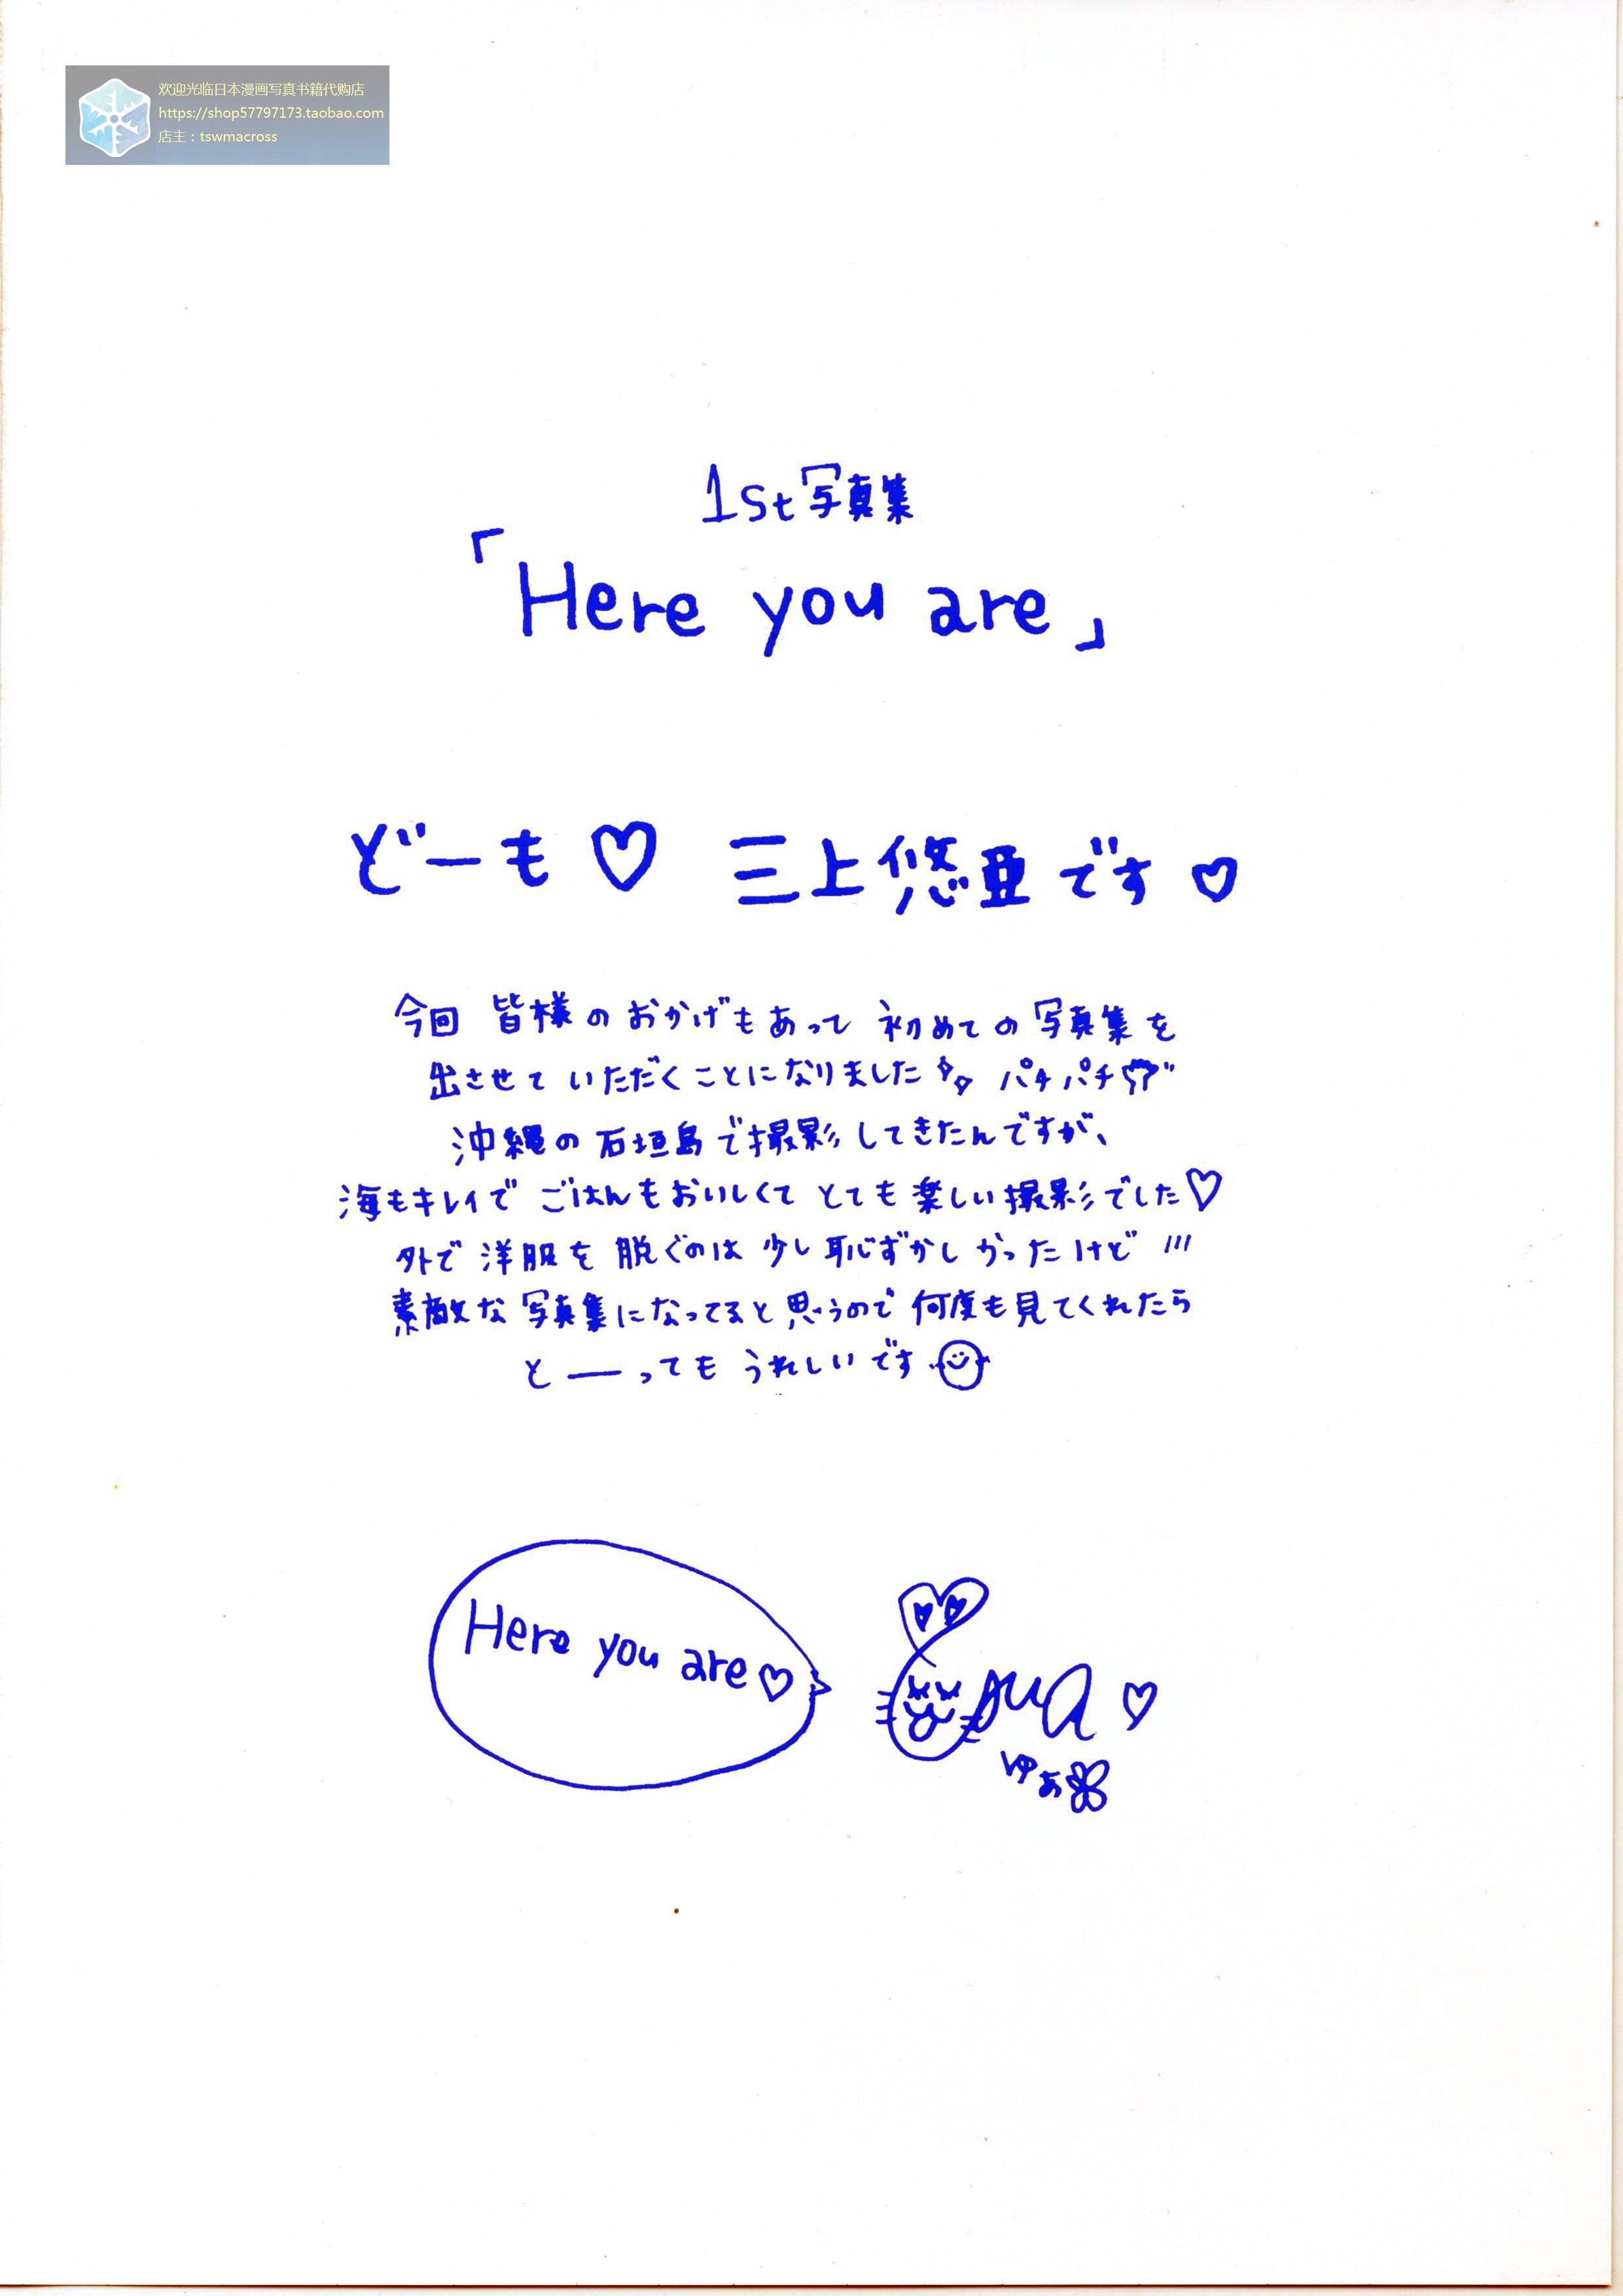 欢迎光临日本漫画写真书籍代购店
https://shop57797173.taobao.com
店主：tswmacross
1st写真集
「Here you are」
どーも♡ 三上悠亜です♡
今回 皆様のおかげもあって 初めての写真集を
出させていただくことになりました パチパチ
沖縄の石垣島で撮影してきたんですが、
海もキレイで ごはんもおいしくて とても楽しい撮影でした♡
外で洋服を脱ぐのは少し恥ずかしかったけど!!!
素敵な写真集になってると思うので何度も見てくれたら
と―ってもうれしいです
Here you are♡
yua♡
ゆあ